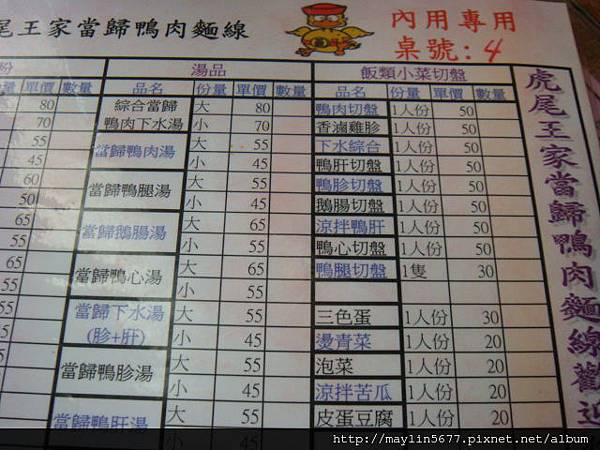 尾王家當歸鴨肉麵線
內用專用
桌號:4
份 單價 數量
湯品
品名 份量 單價 數量
飯類小菜切盤
品名 份量 單價 數量
80
70
55
45
60
50
65
55
65
55
55
45
55
45
55
綜合當歸 大 80
鴨肉下水湯 小 70
當歸鴨肉湯 大 55
小 45
當歸鴨腿湯 大 55
小 45
當歸鵝腸湯 大 65
小 55
當歸鴨心湯 大 65
小 55
當歸下水湯 大 55
(胗+肝) 小 45
當歸鴨胗湯 大 55
小 45
當歸鴨肝湯 大 55
小 45
鴨肉切盤 1人份 50
香滷雞胗 1人份 50
下水綜合 1人份 50
鴨肝切盤 1人份 50
鴨胗切盤 1人份 50
鵝腸切盤 1人份 50
涼拌鴨肝 1人份 50
鴨心切盤 1人份 50
鴨腿切盤 1隻 30
三色蛋 1人份 30
燙青菜 1人份 20
泡菜 1人份 20
涼拌苦瓜 1人份 20
皮蛋豆腐 1人份 20
虎尾王家當歸鴨肉麵線歡迎
http://maylin5677.pixnet.net/album